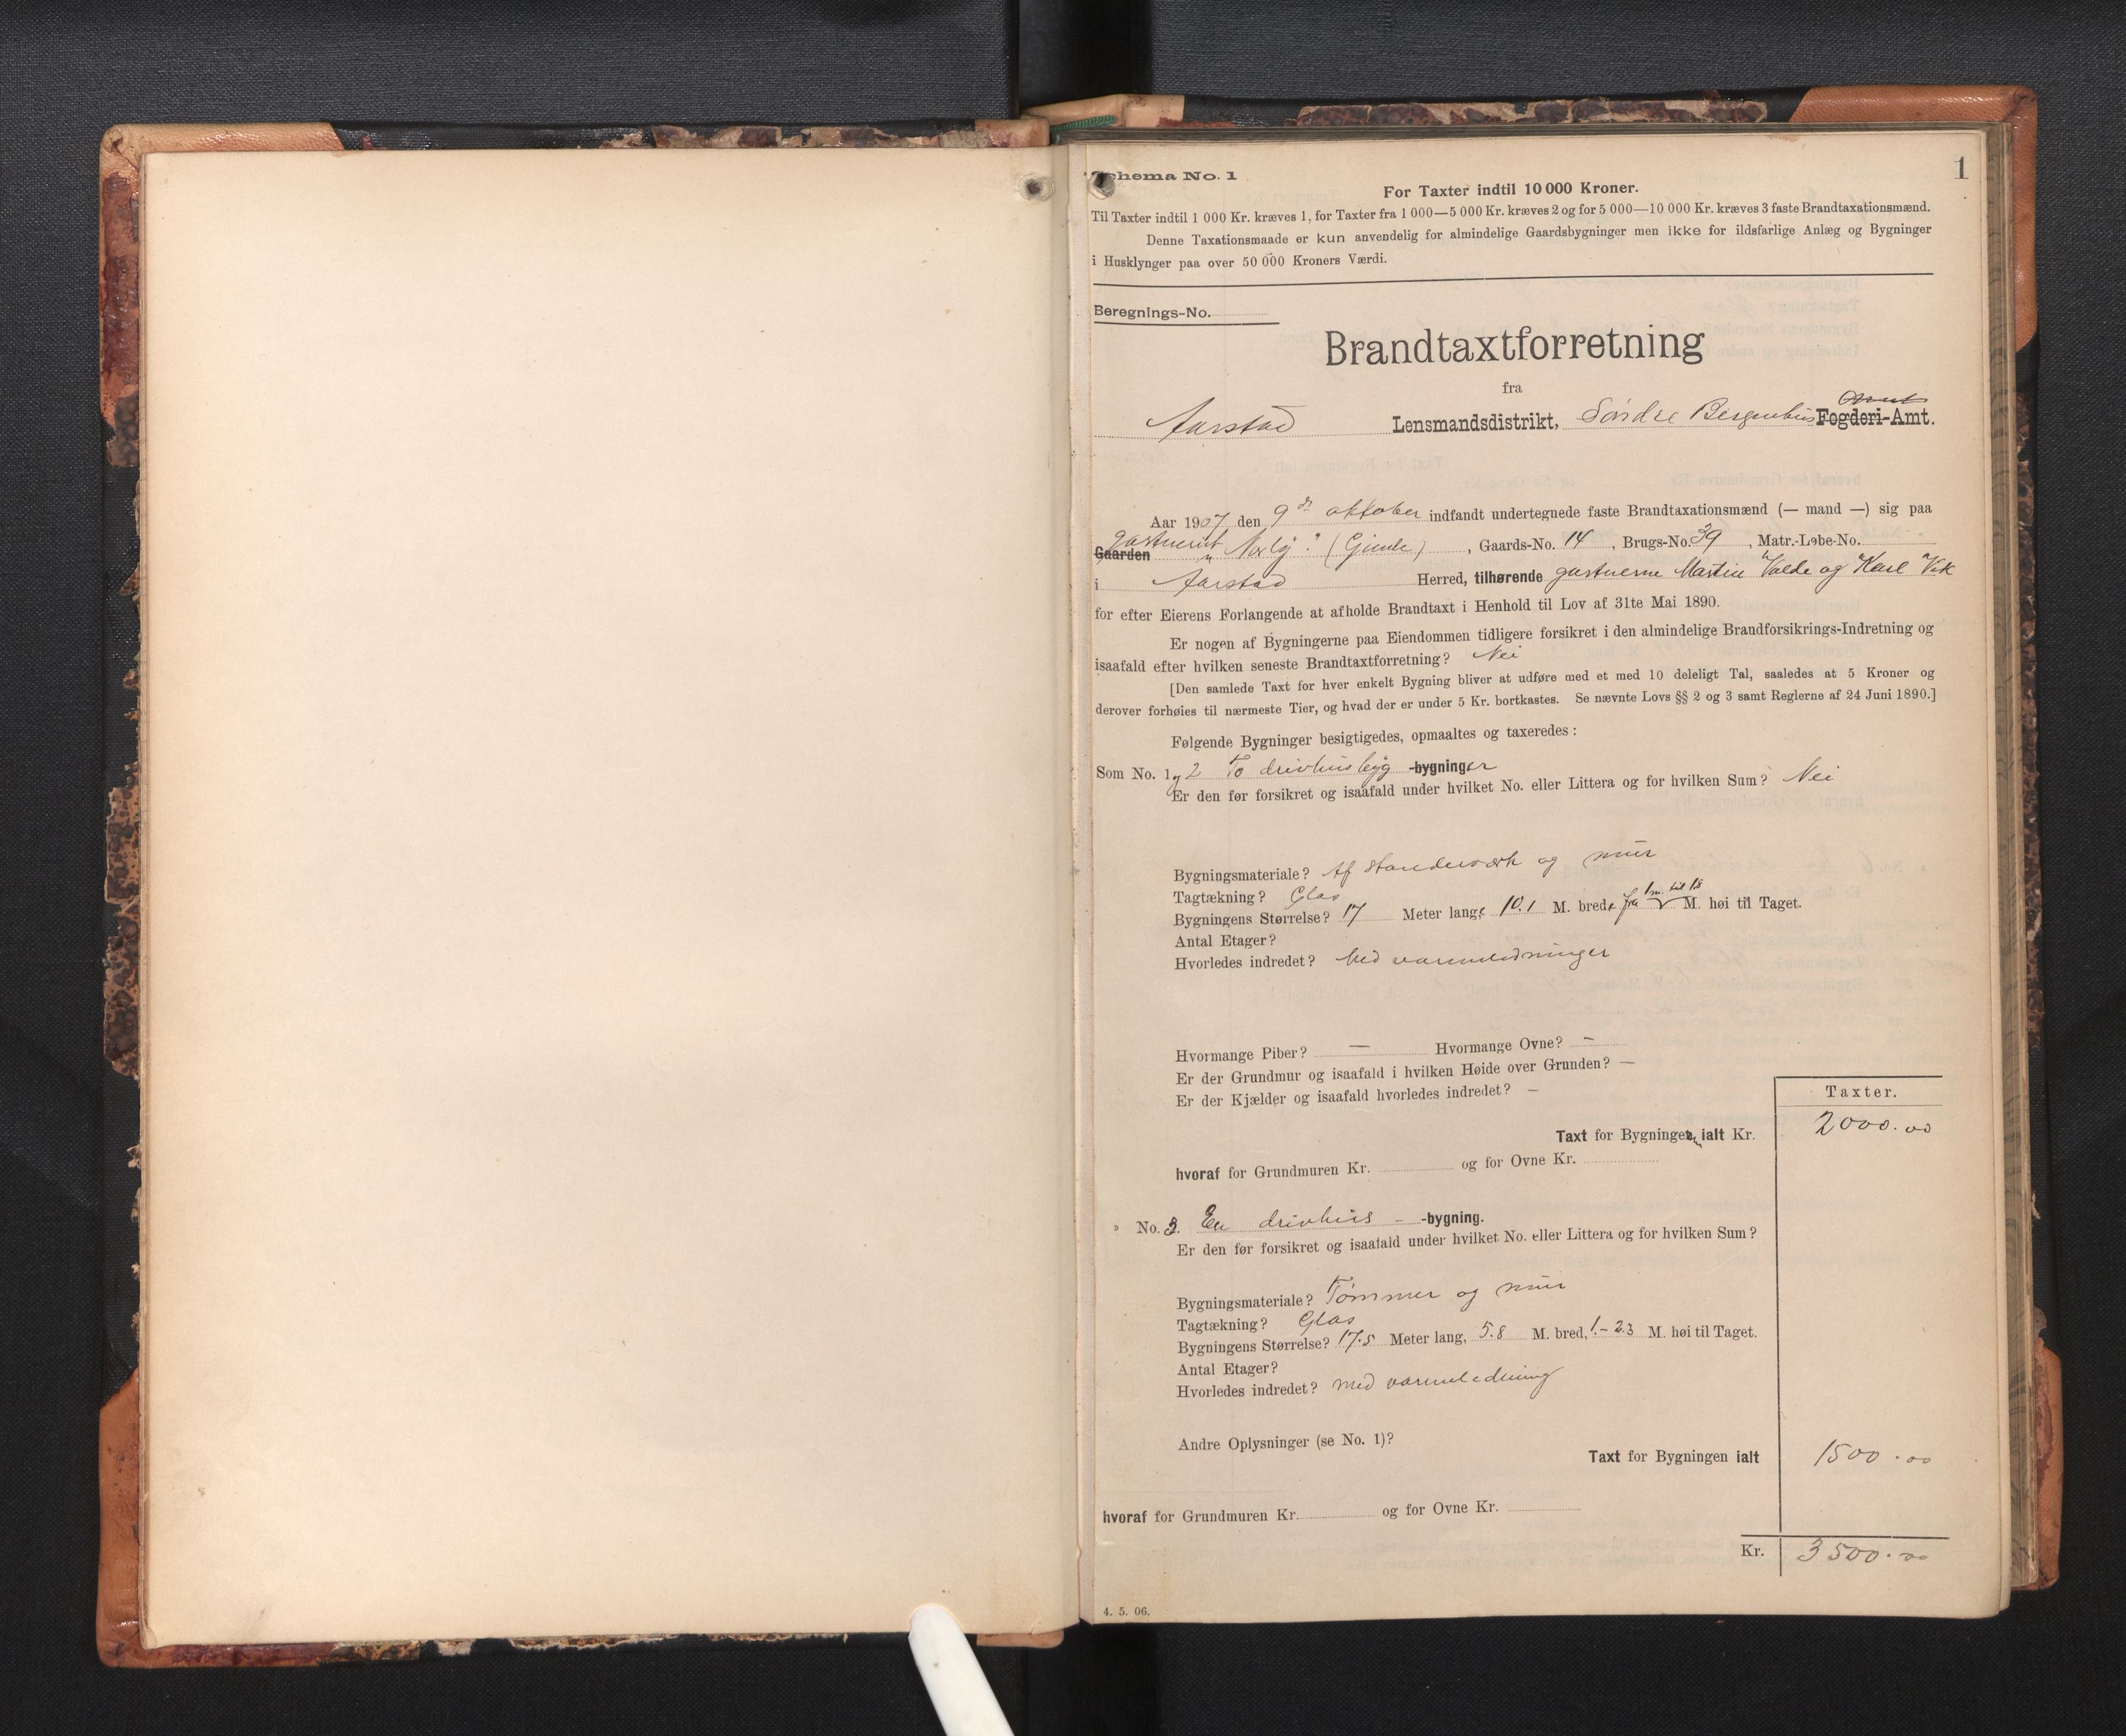 1
Schema No. 1
For Taxter indtil 10 000 Kroner.
Til Taxter indtil 1 000 Kr. kræves 1, for Taxter fra 1 000—5 000 Kr. kræves 2 og for 5 000—10 000 Kr. kræves 3 faste Brandtaxationsmænd.
Denne Taxationsmaade er kun anvendelig for almindelige Gaardsbygninger men ikke for ildsfarlige Anlæg og Bygninger
i Husklynger paa over 50 000 Kroners Værdi.
Beregnings-No.
Brandtaxtforretning
fra
Amt
Aarstad Lensmandsdistrikt, Søndre Bergenhus Fogderi-Amt.
Aar 1907 den 9de oktober indfandt undertegnede faste Brandtaxationsmænd (— mand —) sig paa
Gaarden gartneriet (Gimle), Gaards-No. 14, Brugs-No. 39, Matr.-Løbe-No.
i Aarstad Herred, tilhørende gartnerne Martin Valde og Karl Vik
for efter Eierens Forlangende at afholde Brandtaxt i Henhold til Lov af 31te Mai 1890.
Er nogen af Bygningerne paa Eiendommen tidligere forsikret i den almindelige Brandforsikrings-Indretning og
isaafald efter hvilken seneste Brandtaxtforretning? Nei
[Den samlede Taxt for hver enkelt Bygning bliver at udføre med et med 10 deleligt Tal, saaledes at 5 Kroner og
derover forhøies til nærmeste Tier, og hvad der er under 5 Kr. bortkastes. Se nævnte Lovs §§ 2 og 3 samt Reglerne af 24 Juni 1890.]
Følgende Bygninger besigtigedes, opmaaltes og taxeredes:
Som No. 1 og 2 To drivhusbyg -bygninger
Er den før forsikret og isaafald under hvilket No. eller Littera og for hvilken Sum? Nei
Bygningsmateriale? Af standerværk og mur
Tagtækning? Glas
Bygningens Størrelse? 17 Meter lange 10.1 M. brede fra 1 m. til 1.8 M. høi til Taget.
Antal Etager?
Hvorledes indredet? Med varmeledninger
Hvormange Piber? — Hvormange Ovne? —
Er der Grundmur og isaafald i hvilken Høide over Grunden? —
Er der Kjælder og isaafald hvorledes indredet? —
Taxter.
Taxt for Bygningen ialt Kr. 2000.00
hvoraf for Grundmuren Kr. og for Ovne Kr.
» No. 3. En drivhus - -bygning.
Er den før forsikret og isaafald under hvilket No. eller Littera og for hvilken Sum?
Bygningsmateriale? Tømmer og mur
Tagtækning? Glas
Bygningens Størrelse? 17.5 Meter lang, 5.8 M. bred, 1.-2.3 M. høi til Taget.
Antal Etager?
Hvorledes indredet? med varmeledning
Andre Oplysninger (se No. 1)?
Taxt for Bygningen ialt 1500.00
hvoraf for Grundmuren Kr. og for Ovne Kr.
Kr. 3500.00
4. 5. 06.